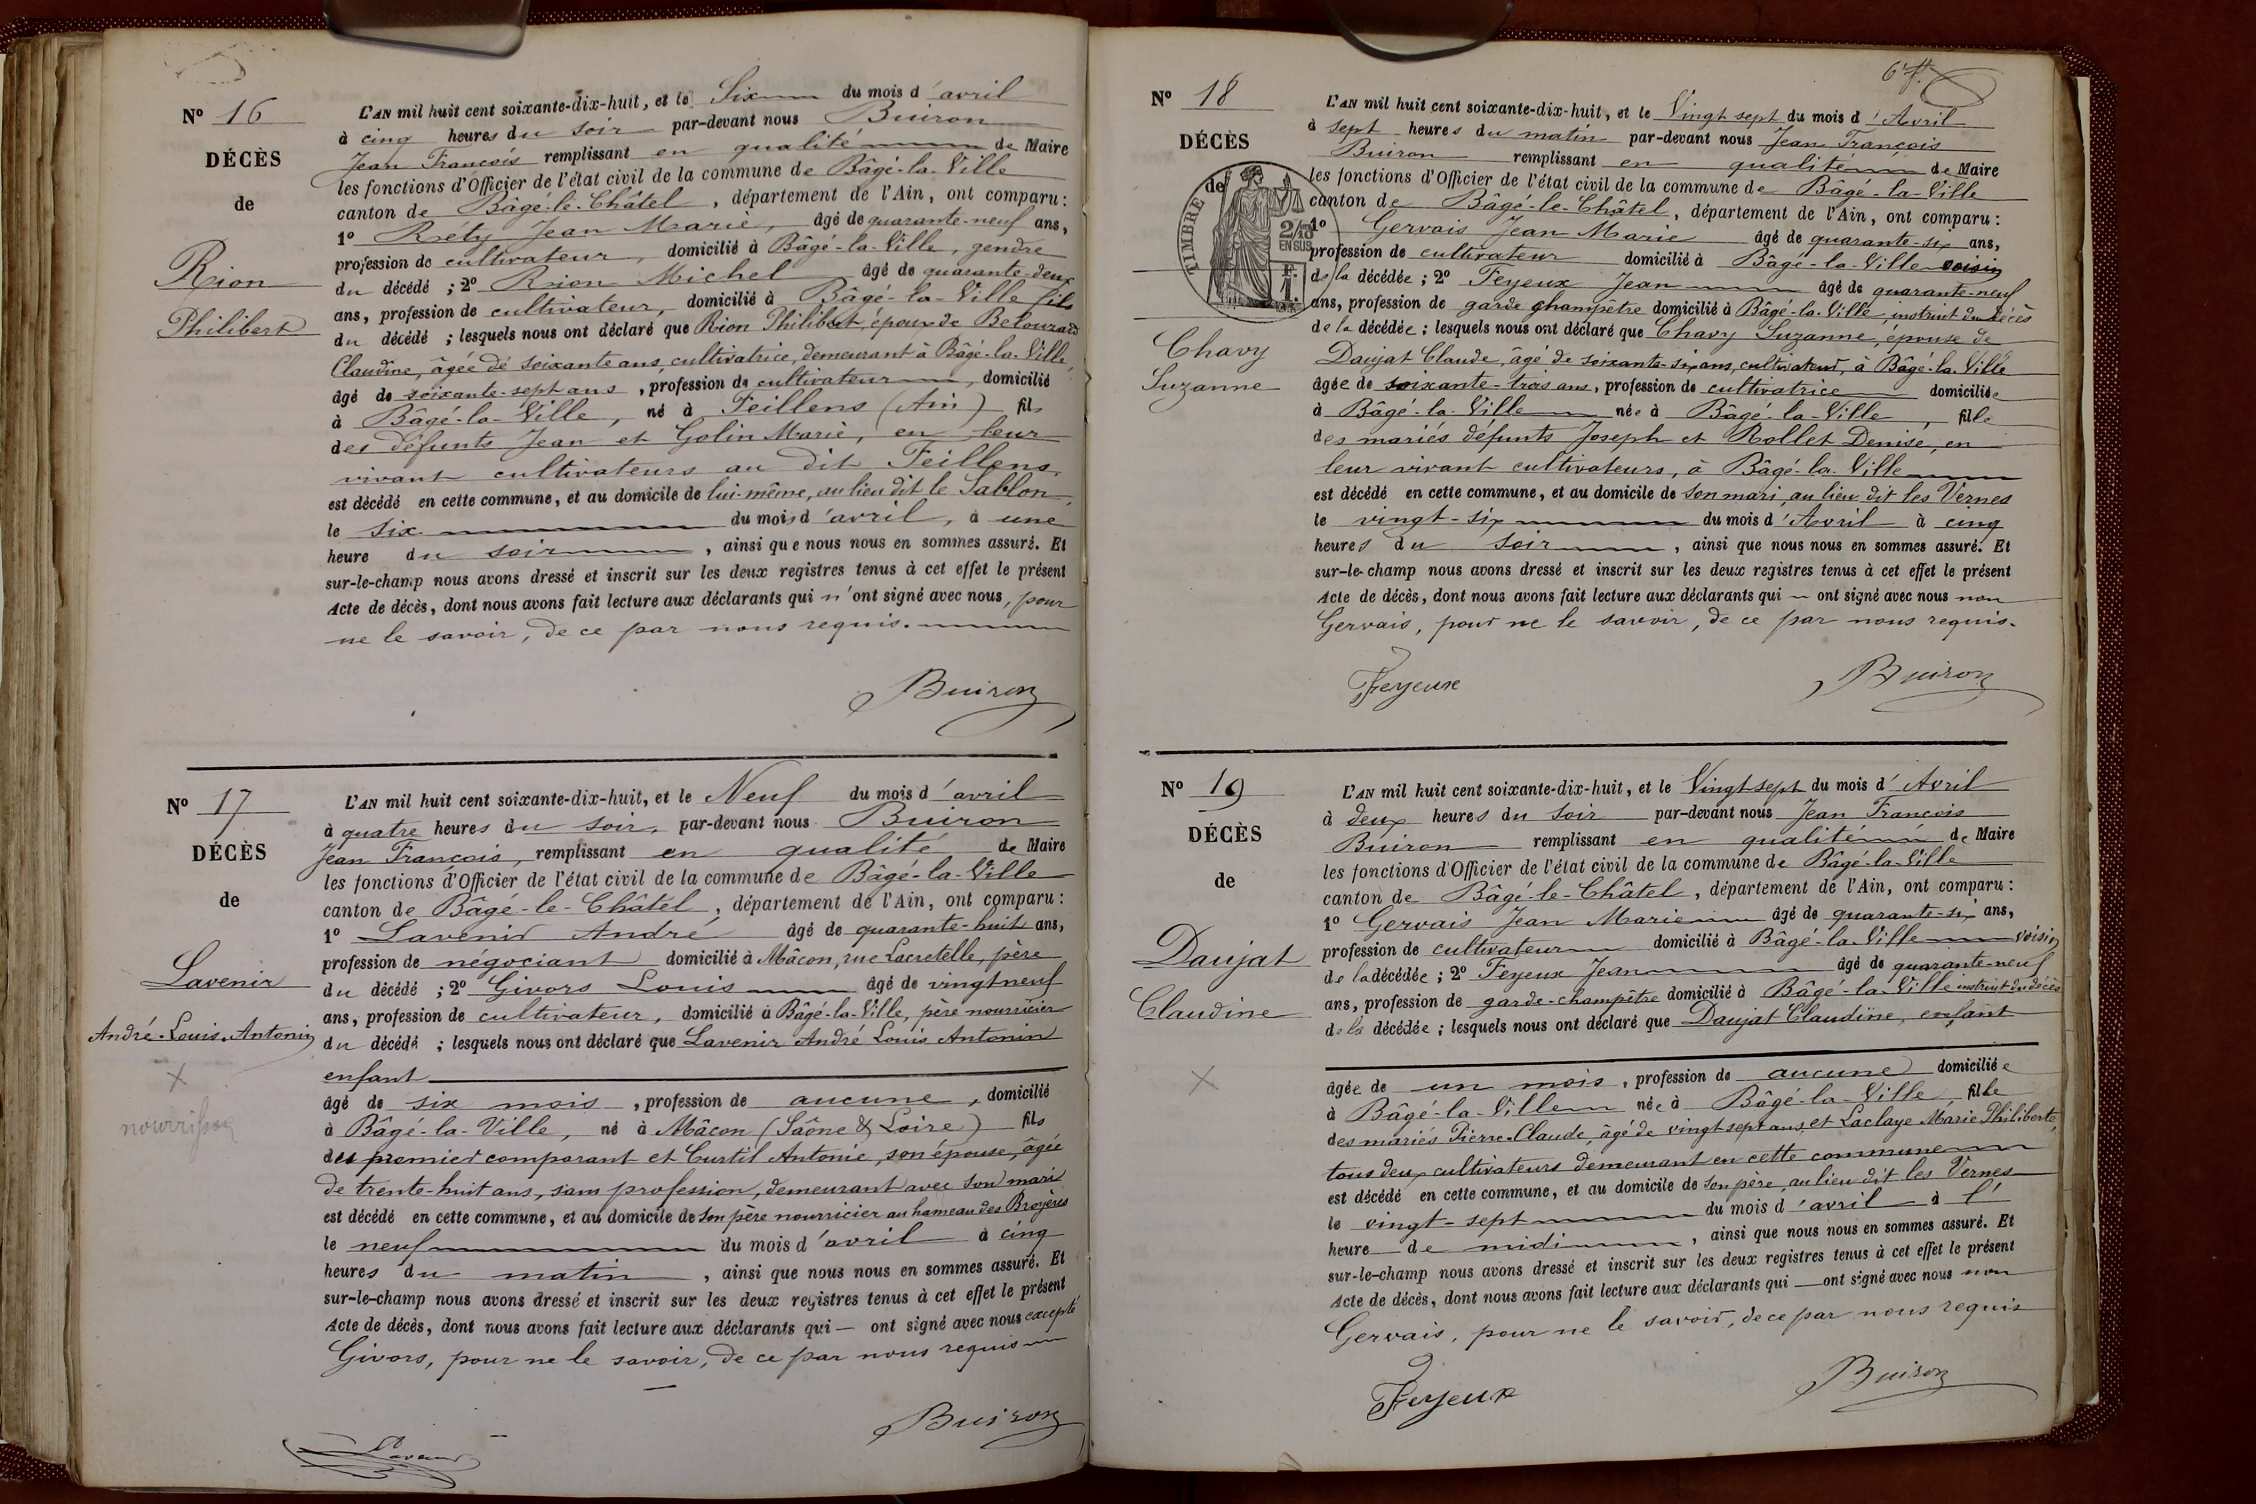 Nº 16
DÉCÈS
de
Rion
Philibert
L'AN mil huit cent soixante-dix-huit, et le Six du mois d'avril
à cinq heures du soir par-devant nous Buiron
Jean François remplissant en qualité de Maire
les fonctions d'Officier de l'état civil de la commune de Bâgé-la-Ville
canton de Bâgé-le-Châtel, département de l'Ain, ont comparu:
1º Rety Jean Marie, âgé de quarante-neuf ans,
profession de cultivateur, domicilié à Bâgé-la-Ville, gendre
du décédé ; 2º Rion Michel âgé de quarante-deux
ans, profession de cultivateur, domicilié à Bâgé-la-Ville fils
du décédé ; lesquels nous ont déclaré que Rion Philibert, époux de Belouzard
Claudine, âgée de soixante ans, cultivatrice, demeurant à Bâgé-la-Ville,
âgé de soixante-sept ans, profession de cultivateur, domicilié
à Bâgé-la-Ville, né à Feillens (Ain) fils
des défunts Jean et Golin Marie, en leur
vivant cultivateurs au dit Feillens
est décédé en cette commune, et au domicile de lui-même, au lieu dit le Sablon
le six du mois d'avril, à une
heure du soir, ainsi que nous nous en sommes assuré. Et
sur-le-champ nous avons dressé et inscrit sur les deux registres tenus à cet effet le présent
Acte de décès, dont nous avons fait lecture aux déclarants qui n'ont signé avec nous, pour
ne le savoir, de ce par nous requis.
Buiron
Nº 17
DÉCÈS
de
Lavenir
André-Louis-Antonin
X
nourrisson
L'AN mil huit cent soixante-dix-huit, et le Neuf du mois d'avril
à quatre heures du soir, par-devant nous Buiron
Jean François, remplissant en qualité de Maire
les fonctions d'Officier de l'état civil de la commune de Bâgé-la-Ville
canton de Bâgé-le-Châtel, département de l'Ain, ont comparu:
1º Lavenir André âgé de quarante-huit ans,
profession de négociant domicilié à Mâcon, rue Lacretelle, père
du décédé ; 2º Givors Louis âgé de vingt neuf
ans, profession de cultivateur, domicilié à Bâgé-la-Ville, père nourricier
du décédé ; lesquels nous ont déclaré que Lavenir André Louis Antonin
enfant
âgé de six mois, profession de aucune, domicilié
à Bâgé-la-Ville, né à Mâcon (Saône & Loire) fils
du premier comparant et Curtil Antonie, son épouse, âgée
de trente-huit ans, sans profession, demeurant avec son mari
est décédé en cette commune, et au domicile de son père nourricier au hameau des Broyères
le neuf du mois d'avril à cinq
heures du matin, ainsi que nous nous en sommes assuré. Et
sur-le-champ nous avons dressé et inscrit sur les deux registres tenus à cet effet le présent
Acte de décès, dont nous avons fait lecture aux déclarants qui — ont signé avec nous excepté
Givors, pour ne le savoir, de ce par nous requis
Buiron
Lavenir
6
Nº 18
DÉCÈS
de
TIMBRE
2/10 EN SUS
Chavy
Suzanne
L'AN mil huit cent soixante-dix-huit, et le Vingt sept du mois d'Avril
à sept heures du matin par-devant nous Jean François
Buiron remplissant en qualité de Maire
les fonctions d'Officier de l'état civil de la commune de Bâgé-la-Ville
canton de Bâgé-le-Châtel, département de l'Ain, ont comparu:
1º Gervais Jean Marie âgé de quarante-six ans,
profession de cultivateur domicilié à Bâgé-la-Ville voisin
de la décédée ; 2º Feyeux Jean âgé de quarante-neuf
ans, profession de garde champêtre domicilié à Bâgé-la-Ville, instruit du décès
de la décédée ; lesquels nous ont déclaré que Chavy Suzanne, épouse de
Daujat Claude, âgé de soixante-six ans, cultivateur, à Bâgé-la-Ville
âgée de soixante-trois ans, profession de cultivatrice domiciliée
à Bâgé-la-Ville née à Bâgé-la-Ville, fille
des mariés défunts Joseph et Rollet Denise, en
leur vivant cultivateurs, à Bâgé-la-Ville
est décédé en cette commune, et au domicile de son mari, au lieu dit les Vernes
le vingt-six du mois d'Avril à cinq
heures du soir, ainsi que nous nous en sommes assuré. Et
sur-le-champ nous avons dressé et inscrit sur les deux registres tenus à cet effet le présent
Acte de décès, dont nous avons fait lecture aux déclarants qui — ont signé avec nous non
Gervais, pour ne le savoir, de ce par nous requis.
Feyeux
Buiron
Nº 19
DÉCÈS
de
Daujat
Claudine
X
L'AN mil huit cent soixante-dix-huit, et le Vingt sept du mois d'Avril
à deux heures du soir par-devant nous Jean François
Buiron remplissant en qualité de Maire
les fonctions d'Officier de l'état civil de la commune de Bâgé-la-Ville
canton de Bâgé-le-Châtel, département de l'Ain, ont comparu:
1º Gervais Jean Marie âgé de quarante-six ans,
profession de cultivateur domicilié à Bâgé-la-Ville voisin
de la décédée ; 2º Feyeux Jean âgé de quarante-neuf
ans, profession de garde-champêtre domicilié à Bâgé-la-Ville instruit du décès
de la décédée ; lesquels nous ont déclaré que Daujat Claudine, enfant
âgée de un mois, profession de aucune domiciliée
à Bâgé-la-Ville née à Bâgé-la-Ville, fille
des mariés Pierre-Claude, âgé de vingt sept ans, et Laclaye Marie Philiberte,
tous deux cultivateurs demeurant en cette commune
est décédé en cette commune, et au domicile de son père, au lieu dit les Vernes
le vingt-sept du mois d'avril à l'
heure de midi, ainsi que nous nous en sommes assuré. Et
sur-le-champ nous avons dressé et inscrit sur les deux registres tenus à cet effet le présent
Acte de décès, dont nous avons fait lecture aux déclarants qui — ont signé avec nous non
Gervais, pour ne le savoir, de ce par nous requis
Feyeux
Buiron